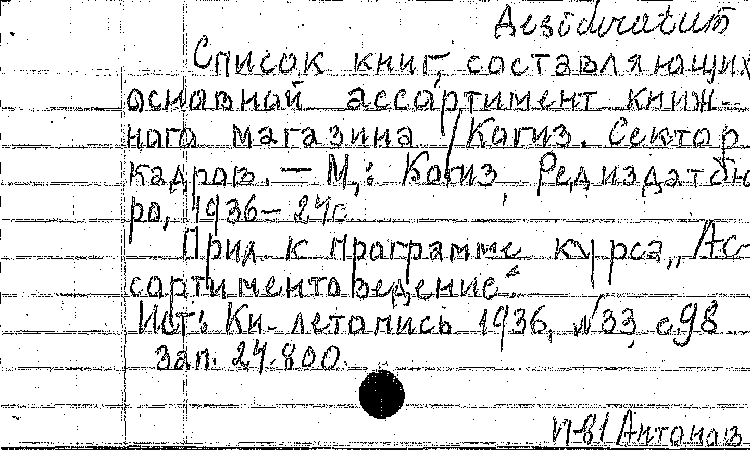 Desideratum
Список книг, составляющих
основной ассортимент книж-
ного магазина / Когиз. Сектор
кадров. — М,: Когиз, Редиздатбю
ро, 1936 – 24с
Прид к программе курса „Ас-
сортиментоведение“.
Ист: Кн. летопись 1936, №33, с98
зап. 24.800.
П-в/ Антонов